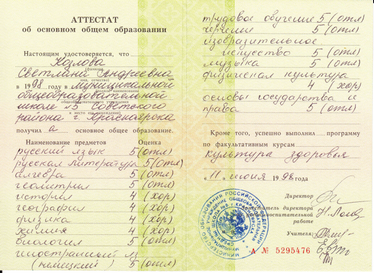 АТТЕСТАТ
об основном общем образовании
Настоящим удостоверяется, что
Козлова
Светлана Андреевна
в 1998 году в Муниципальной
общеобразовательной
школе 15 Советского
района г. Красноярска
получил а основное общее образование.
Наименования предметов Оценка
русский язык 5 (отл)
русская литература 5 (отл)
алгебра 5 (отл)
геометрия 5 (отл)
история 4 (хор)
география 4 (хор)
физика 4 (хор)
химия 4 (хор)
биология 5 (отл)
иностранный
(немецкий) 5 (отл)
трудовое обучение 5 (отл)
черчение 5 (отл)
изобразительное
искусство 5 (отл)
музыка 5 (отл)
физическая культура
4 (хор)
основы государства и
права 5 (отл)
Кроме того, успешно выполнил а программу
по факультативным курсам
культура здоровья
11 июня 1998 года
Директор
Заместитель директора
по учебно-воспитательной
работе
Учителя:
А № 5295476